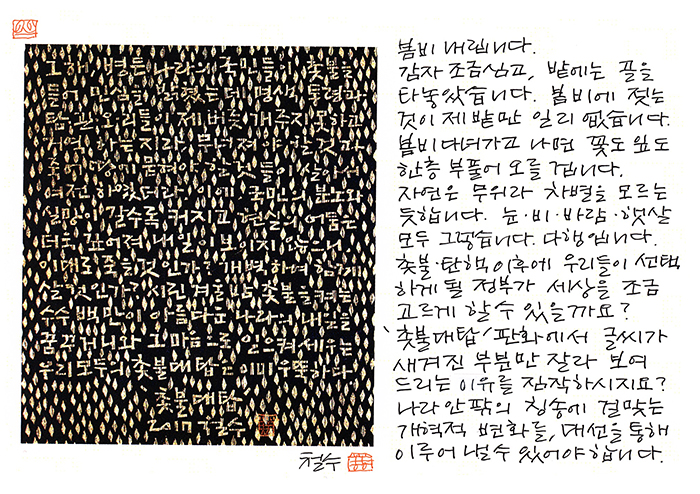 그해, 별든 나라의 국민들이 촛불을
들어 민심을 밝혔는데 명색 통령과
탐관오리들이 제 버릇 개 주지 못하고
여전하는지라 무너져야 할 것과
죽어 땅에 묻혀야 할 것들이 살아서
여전하였더라. 이에 국민의 분노와
실망이 갈수록 커지고 현실의 어둠은
더욱 깊어져 내일이 보이지 않으니
이대로 죽을 것인가? 개벽하여 함께
살 것인가? 시린 겨울밤 촛불을 켜는
수수백만이 아름답고 나라의 내일을
꿈꾸거니와 그 마음으로 일으켜 세우는
우리 모두의 촛불대탑은 이미 우뚝하다.
촛불대탑
2017 철수
철수
봄비 내립니다.
감자 조금 심고, 밭에는 풀을
타놓았습니다. 봄비에 젖는
것이 제 밭만 일 리 없습니다.
봄비 다녀가고 나면 꽃도 잎도
한층 부풀어 오를 겁니다.
자연은 무위라 차별을 모르는
듯합니다. 눈·비·바람·햇살
모두 그렇습니다. 다행입니다.
촛불·탄핵 이후에 우리들이 선택
하게 될 정부가 세상을 조금
고르게 할 수 있을까요?
'촛불대탑' 판화에서 글씨가
새겨진 부분만 잘라 보여
드리는 이유를 짐작하시지요?
나라 안팎의 칭송에 걸맞는
개혁적 변화들, 대선을 통해
이루어 낼 수 있어야 합니다.